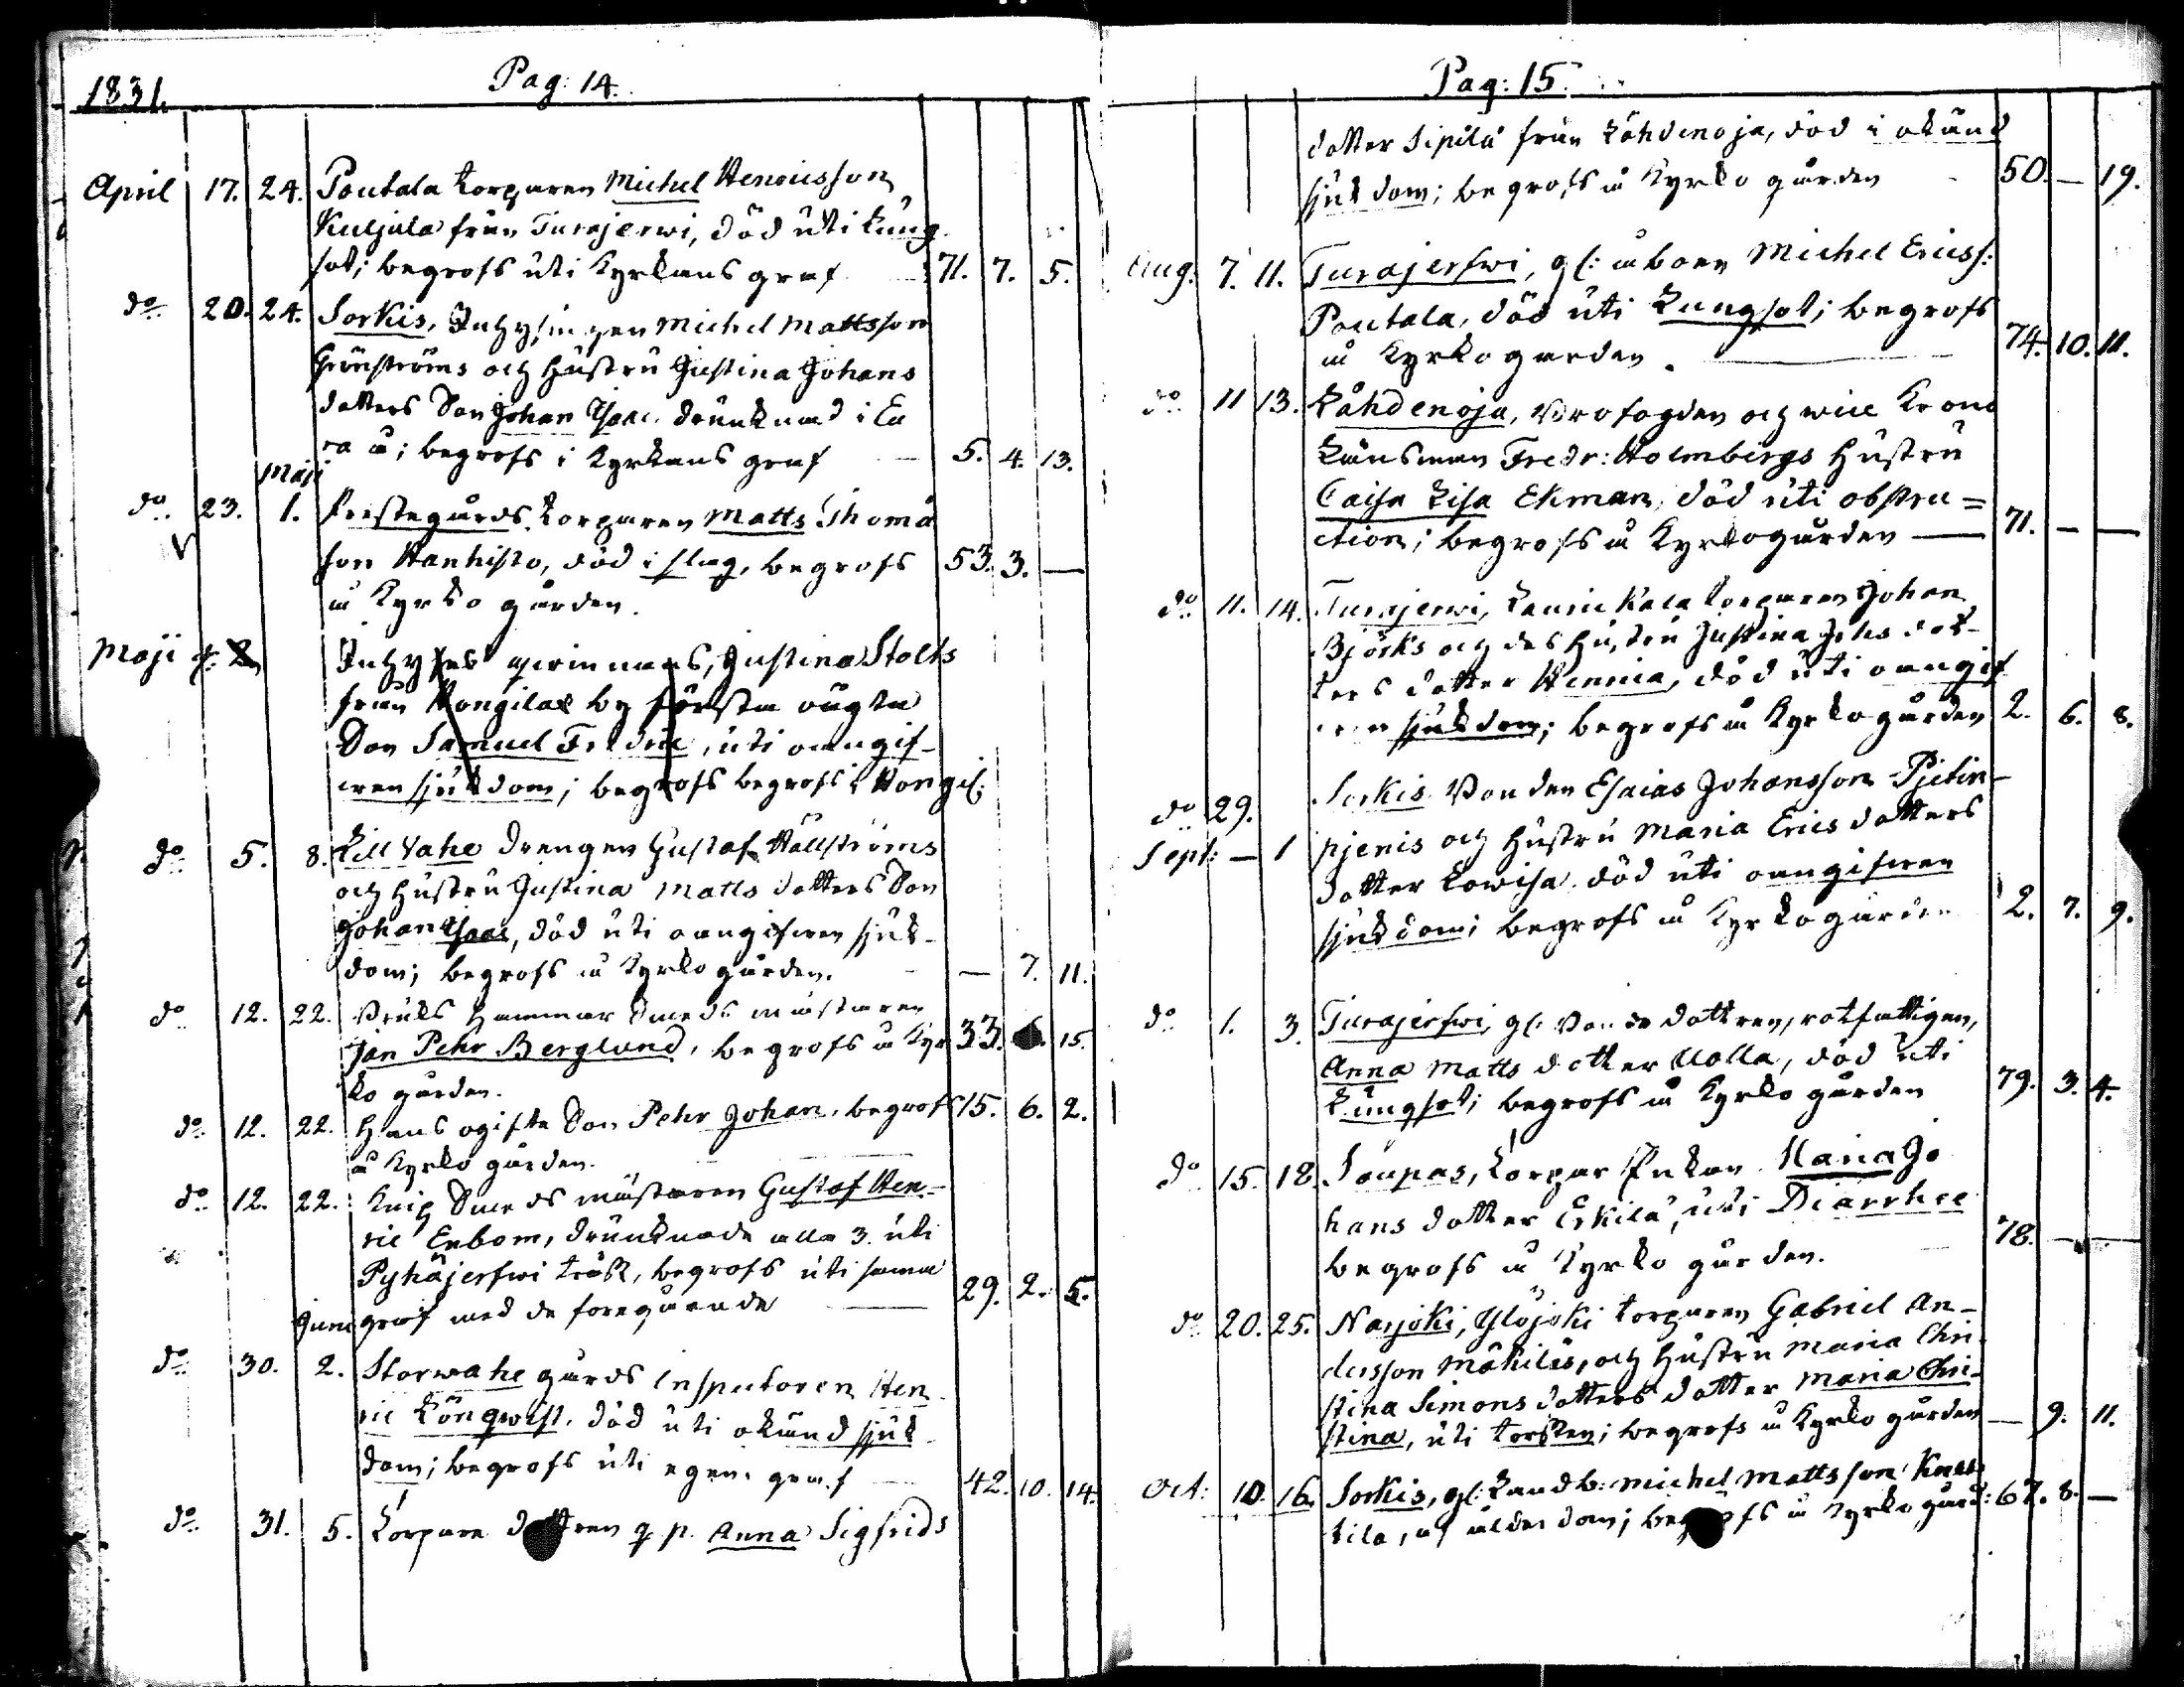 1831.
Pag: 14.
April 17. 24. Poutala torparen Michel Henricsson
Kuljula från Turajerwi, död uti lung
sot; begrofs uti Kyrkans graf 71. 7. 5.
do 20. 24. Sorkis, Inhysingen Michel Mattsson
Grönströms och hustru Justina Johans
dotters Son Johan Isaac drunknad i Eu
ra å; begrofs i Kyrkans graf 5. 4. 13.
Maji
do 23. 1. Prestegårds torparen Matts Thomæ
son Hanhisto, död i slag, begrofs 53. 3. —
å Kyrko gården.
Maji
Inhyses qvinnans, Justina Stolts
från Hongila by första oägta
Son Samuel Fredric, uti oangif-
wen sjukdom; begrofs begrofs i Hongil:
do 5. 8. Lill Vahe drengen Gustaf Hällströms
och hustru Justina Matts dotters Son
Johan Isaac, död uti oangifwen sjuk-
dom; begrofs å Kyrko gården. — 7. 11.
do 12. 22. Bruks Hammar Smeds mästaren
Jan Pehr Berglund, begrofs å Kyr 33. 15.
ko gården.
do 12. 22. Hans ogifte Son Pehr Johan, begrofs 15. 6. 2.
å Kyrko gården.
do 12. 22. Knip Smeds mästaren Gustaf Hen-
ric Enbom, drunknade alla 3. uti
Pyhäjerfwi träsk, begrofs uti samma
Juni graf med de föregående 29. 2. 5.
do 30. 2. Storwahe gårds inspectoren Hen
ric Lönqwist, död uti okänd sjuk
dom; begrofs uti egen graf 42. 10. 14.
do 31. 5. Torpare dottren q. p. Anna Sigfrids
Pag: 15.
dotter Sipilä från Lähdenoja, död i okänd
sjukdom; begrofs å Kyrko gården 50. — 19.
Aug: 7. 11. Turajerfwi, gl: åboen Michel Ericss:
Poutala, död uti Lungsot; begrofs
å Kyrkogården. 74. 10. 11.
do 11 13. Lähdenoja, Brofogden och vice Krono
Länsman Fredr: Holmbergs hustru
Caisa Lisa Ekman, död uti obstru=
ction; begrofs å Kyrkogården — 71. — —
do 11. 14. Turajerwi, Laurikala torparen Johan
Björks och des hustru Justina Johs dot-
ters dotter Hennia, död uti oangif
wen sjukdom; begrofs å Kyrkogården 2. 6. 8.
do 29. Sorkis Bonden Esaias Johansson Pjetin-
Sept: — 1 pjenis och hustru Maria Erics dotters
dotter Lowisa, död uti oangifwen
sjukdom; begrofs å Kyrkogården 2. 7. 9.
do 1. 3. Turajerfwi, gl: Bonde dottren, rotfattigen,
Anna Matts dotter Uolla, död uti
Lungsot; begrofs å Kyrko gården 79. 3. 4.
do 15. 18. Soupas, torpar Enkan Maria Jo
hans dotter Erkilä, uti Diarrhee
begrofs å Kyrko gården. 78. — —
do 20. 25. Narjoki, Ylöjoki torparen Gabriel An-
dersson Mäkiläs, och hustru Maria Chri-
stina Simons dotters dotter Maria Chri-
stina, uti torsken; begrofs å Kyrko gården — 9. 11.
Oct: 10. 16. Sorkis, gl: Landb: Michel Mattsson
tila, af ålderdom; begrofs å Kyrko gård: 67. 8. —